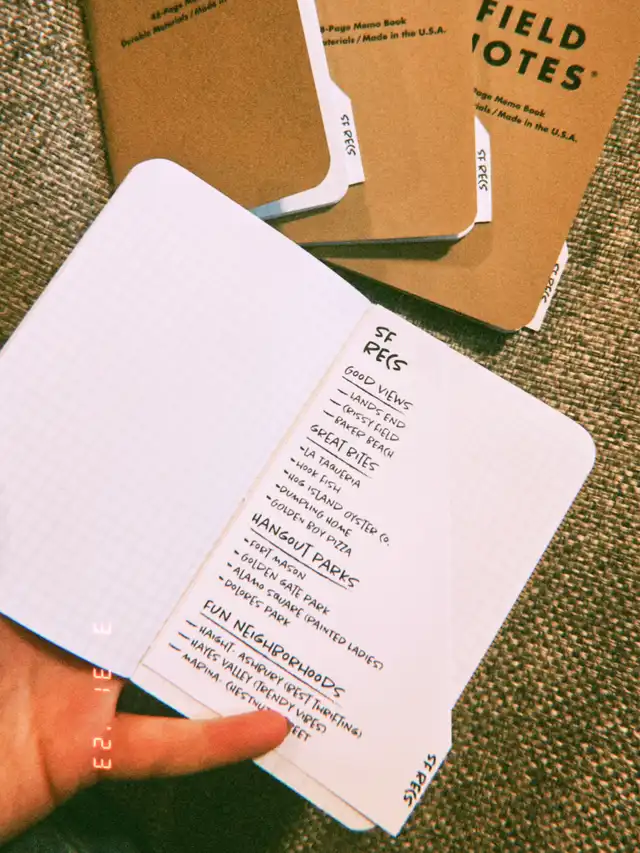 48-Page
Durable Materials / Made in
-Page Memo Book
Materials / Made in the U.S.A.
FIELD
NOTES
Page Memo Book
Made in the U.S.A.
SF RECS
SF RECS
SF RECS
SF
RECS
GOOD VIEWS
- LANDS END
- CRISSY FIELD
- BAKER BEACH
GREAT BITES
- LA TAQUERIA
- HOOK FISH
- HOG ISLAND OYSTER CO.
- DUMPLING HOME
- GOLDEN BOY PIZZA
HANGOUT PARKS
- FORT MASON
- GOLDEN GATE PARK
- ALAMO SQUARE (PAINTED LADIES)
- DOLORES PARK
FUN NEIGHBORHOODS
- HAIGHT-ASHBURY (BEST THRIFTING)
- HAYES VALLEY (TRENDY VIBES)
- MARINA: (CHESTNUT
SF RECS
3 31 '23